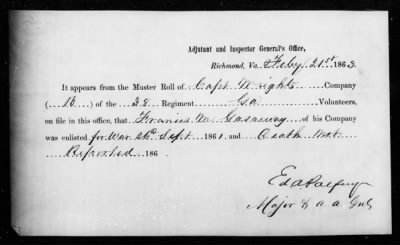 Adjutant and Inspector General's Office,
Richmond, Va. Feby. 21st 1863
It appears from the Muster Roll of Capt Wrights Company
( ) of the 38 Regiment Ga Volunteers,
on file in this office, that Francis M. Gasaway of his Company
was enlisted for War Sept 1861 and Death Not
Reported 186
Major & a a Genl